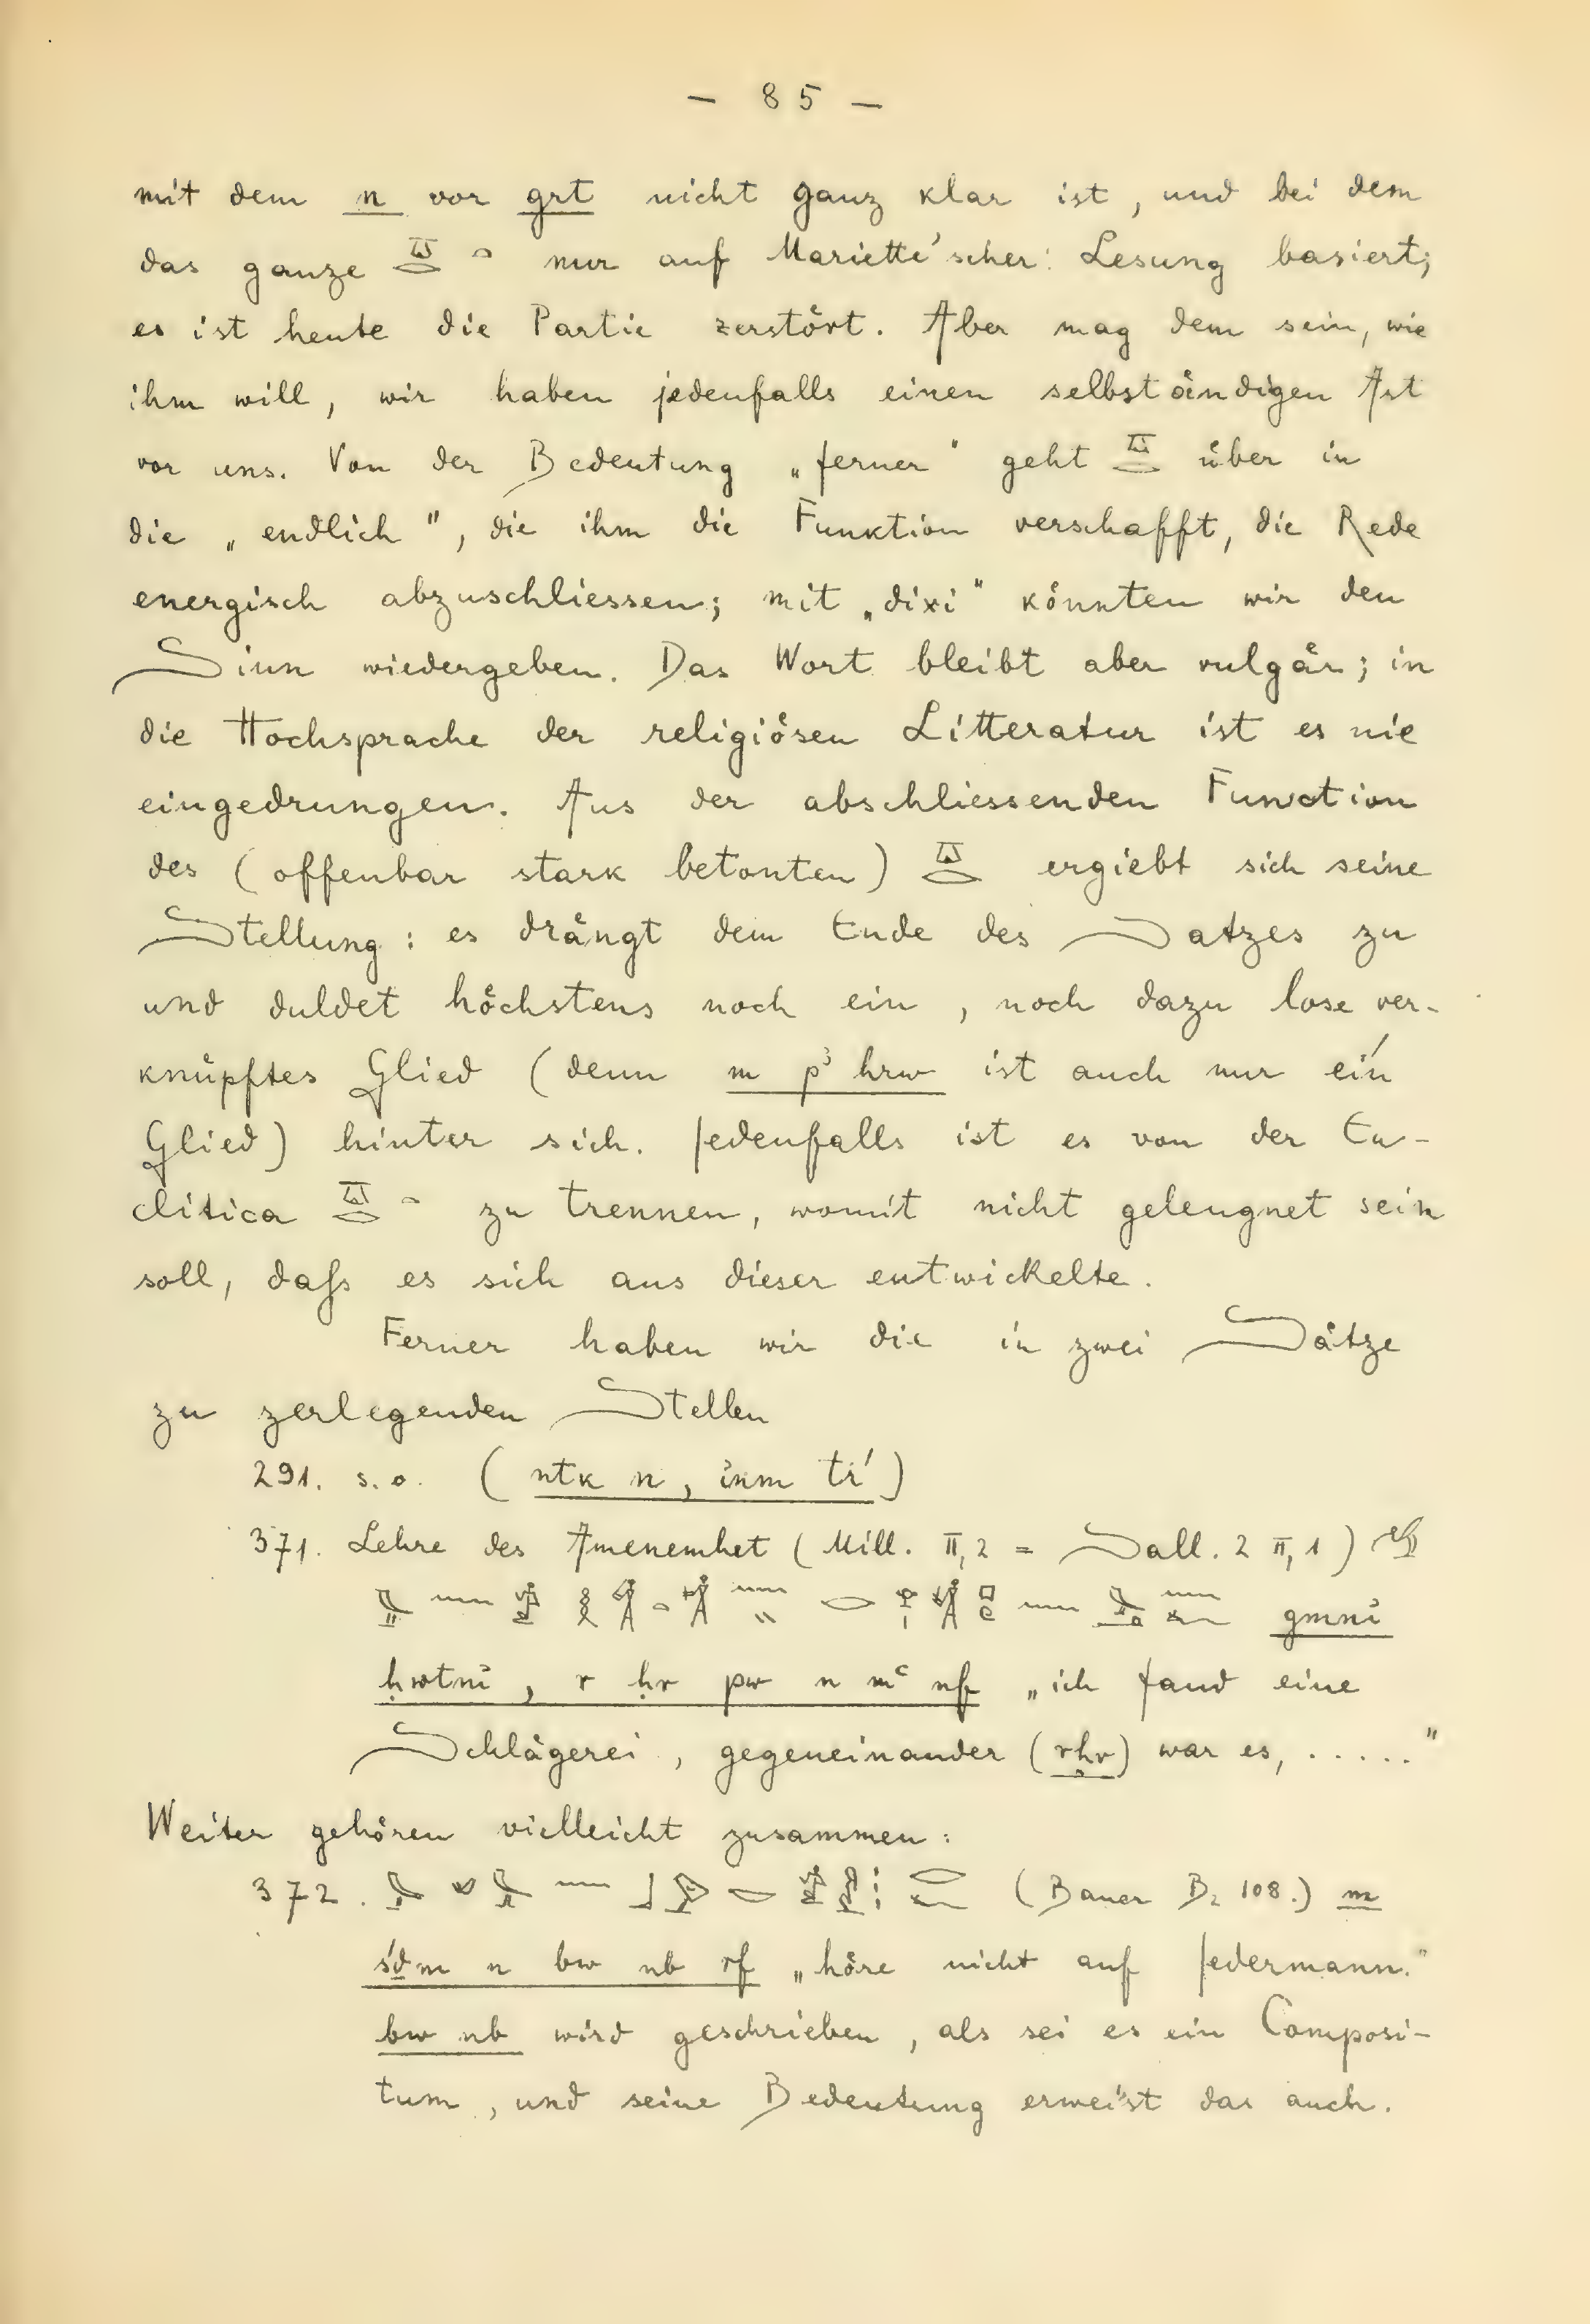 — 85 —
mit dem n vor grt nicht ganz klar ist, und bei dem
das ganze nur auf Mariette'scher Lesung basiert;
es ist heute die Partie zerstört. Aber mag dem sein, wie
ihm will, wir haben jedenfalls einen selbständigen Ast
vor uns. Von der Bedeutung „ferner" geht über in
die „endlich", die ihm die Funktion verschafft, die Rede
energisch abzuschliessen; mit „dixi" könnten wir den
Sinn wiedergeben. Das Wort bleibt aber vulgär; in
die Hochsprache der religiösen Litteratur ist es nie
eingedrungen. Aus der abschliessenden Function
des (offenbar stark betonten) ergiebt sich seine
Stellung: es drängt dem Ende des Satzes zu
und duldet höchstens noch ein, noch dazu lose ver-
knüpftes Glied (denn m pꜣ hrw ist auch nur ein
Glied) hinter sich. Jedenfalls ist es von der En-
clitica zu trennen, womit nicht geleugnet sein
soll, daſs es sich aus dieser entwickelte.
Ferner haben wir die in zwei Sätze
zu zerlegenden Stellen
291. s. o. (ntk n, inm tr)
371. Lehre des Amenemhet (Mill. II, 2 = Sall. 2 II, 1)
gmnỉ
ḥwtnỉ, r ḥr pw n mꜥ nf „ich fand eine
Schlägerei, gegeneinander (rḥr) war es, ....."
Weiter gehören vielleicht zusammen:
372. (Bauer B₂ 108.) m
śḏm n bw nb rf „höre nicht auf Jedermann."
bw nb wird geschrieben, als sei es ein Composi-
tum, und seine Bedeutung erweist das auch.